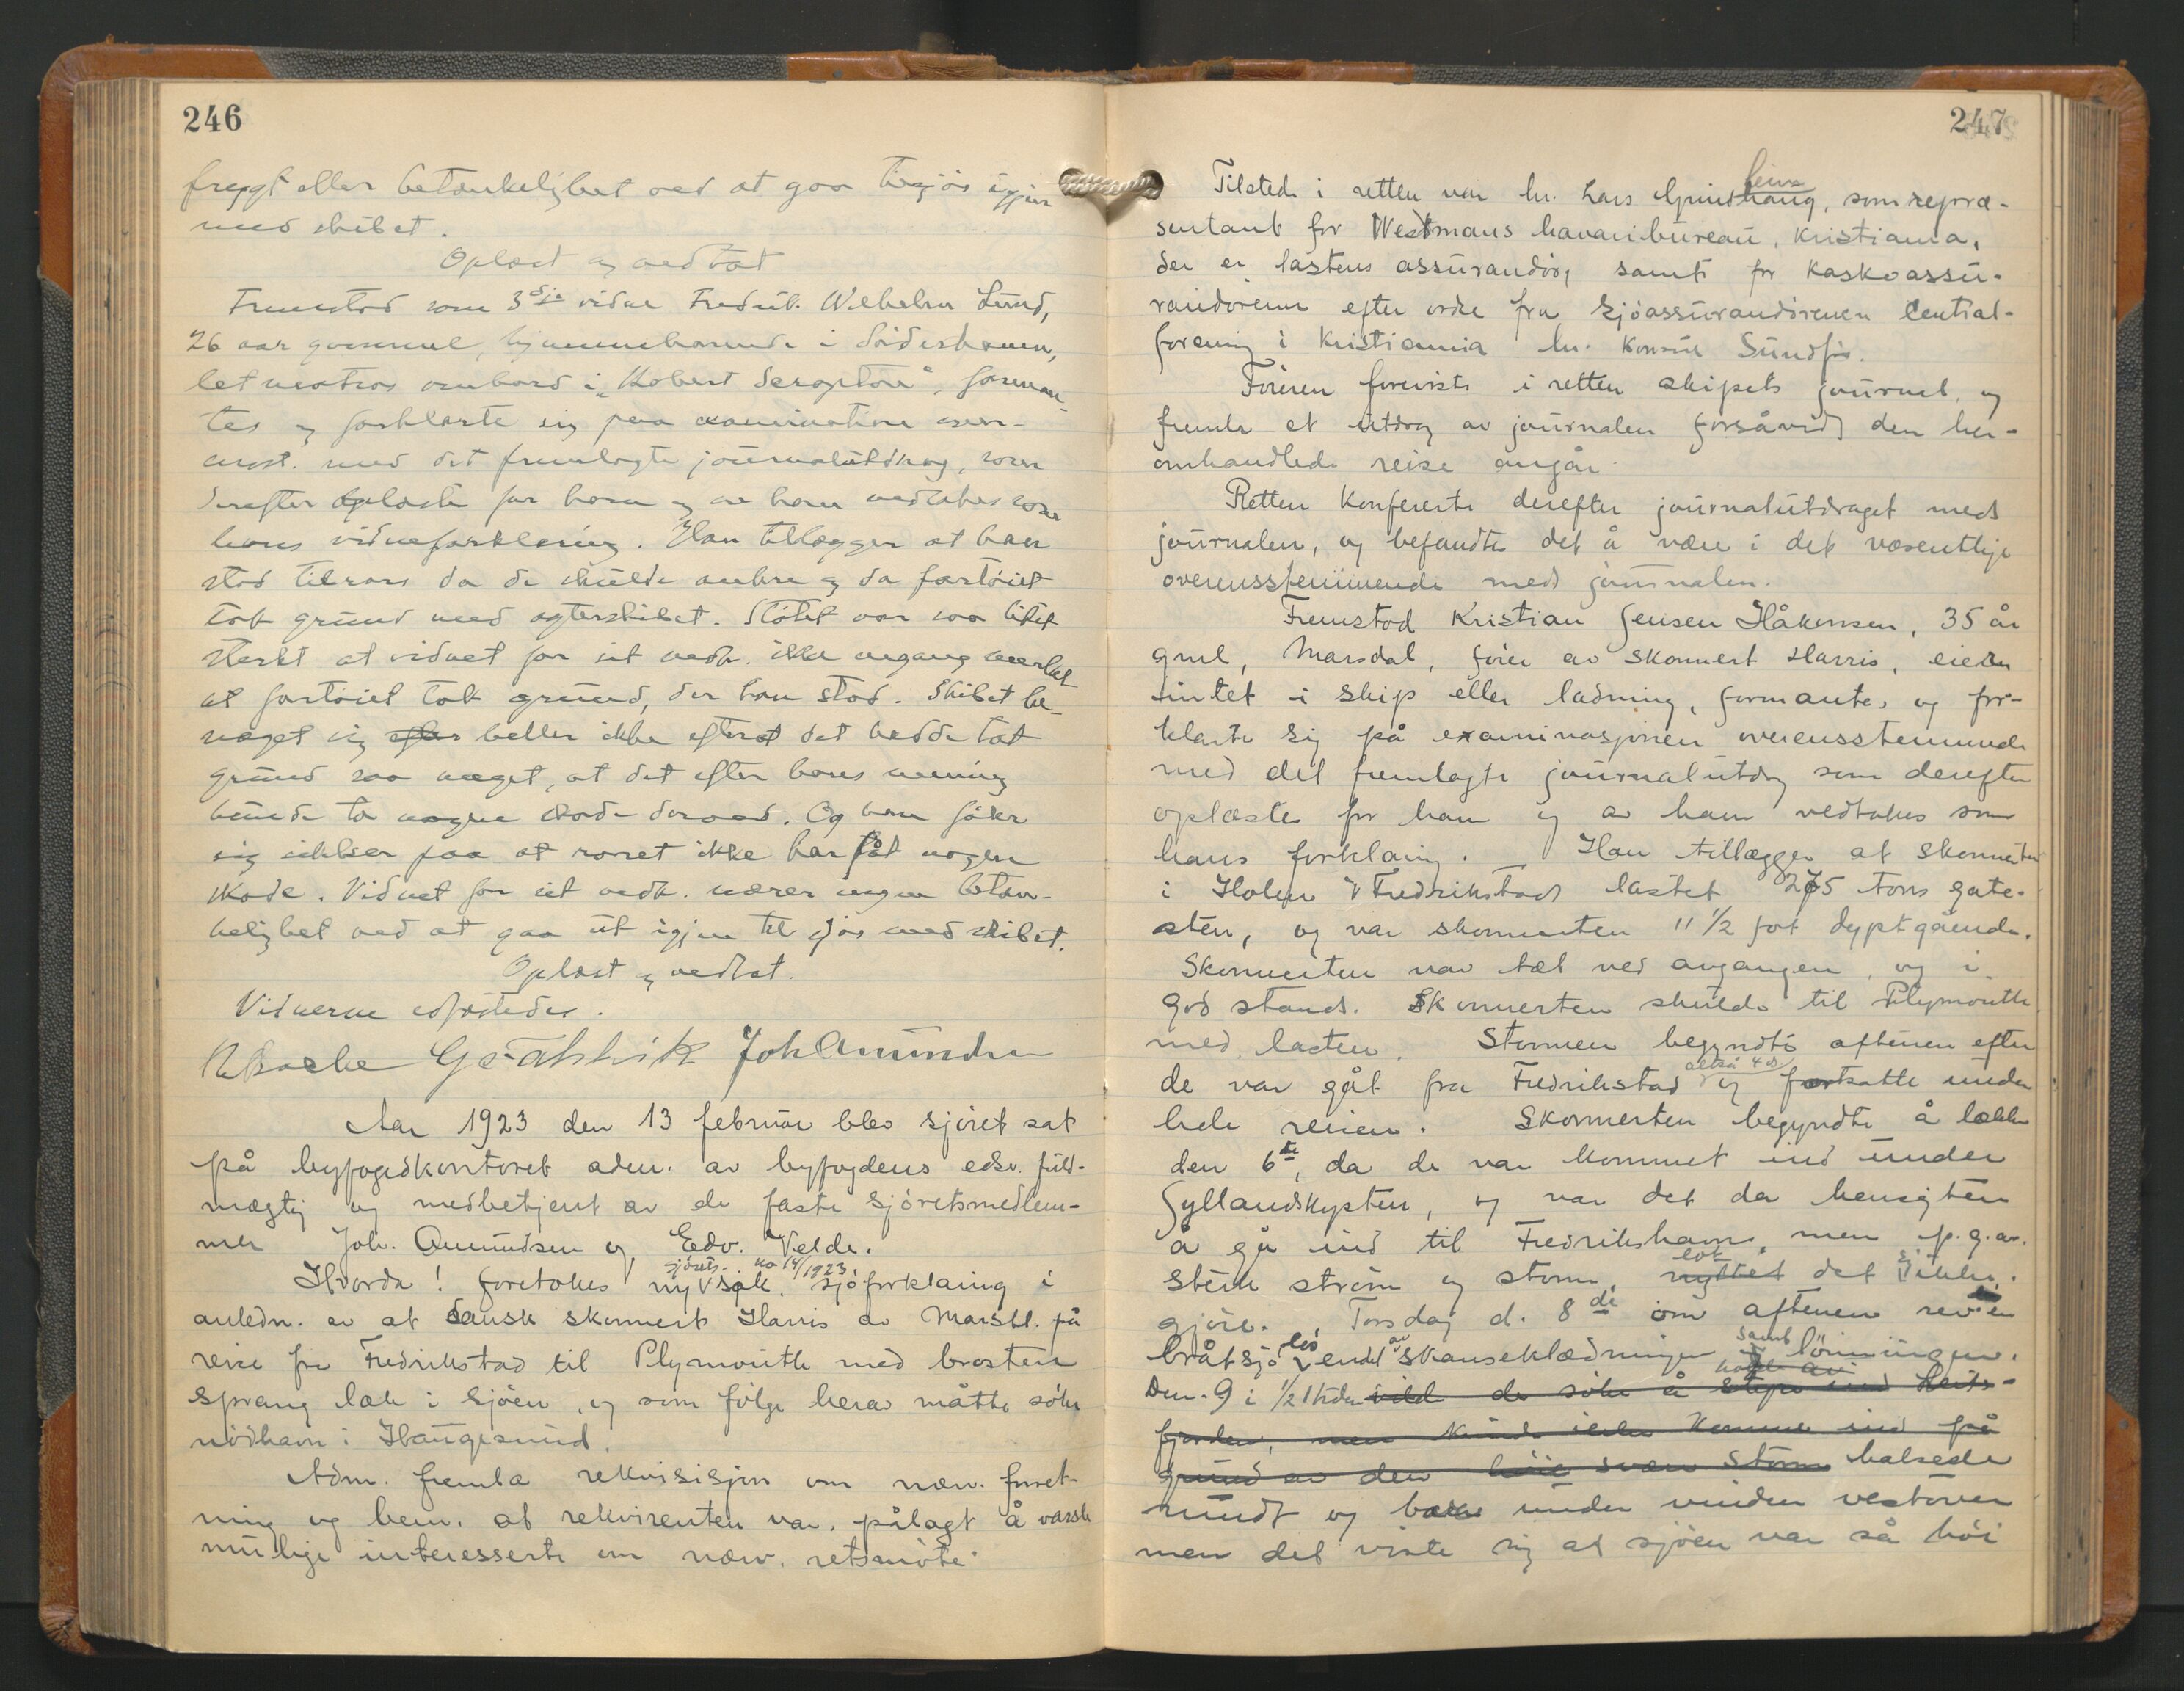 246
frygt eller betænkelighet ved at gaa tilsjøs igjen
med skibet.
Oplæst og vedtat
Fremstod som 3dje vidne Fredrik Wilhelm Lund,
26 aar gammel, hjemmehørende i
letmatros ombord i "Robert", forman-
tes og forklarte sig paa examination over-
enst. med det fremlagte journalutdrag, som
derefter oplæstes for ham og av ham vedtokes som
hans vidneforklaring. Han tillægger at han
stod tilrors da de skulde ankre og da fartøiet
tok grund med agterskibet. Støtet var saa litet
sterkt at vidnet for sit vedk. ikke engang merket
at fartøiet tok grund, der han stod. Skibet be-
væget sig heller ikke efterat det hadde tat
grund saa meget, at det efter hans mening
kunde ta nogen skade derved. Og han føler
sig sikker paa at roret ikke har fåt nogen
skade. Vidnet for sit vedk. nærer ingen betæn-
kelighet ved at gaa ut igjen til sjøs med skibet.
Oplæst og vedtat.
Vidnerne edfæstedes.
Joh Amundsen
Aar 1923 den 13 februar blev sjøret sat
på byfogedkontoret adm. av byfogdens edsv. fuld-
mægtig og medbetjent av de faste sjøretsmedlem-
mer Joh. Amundsen og Edv. Velde.
sjørets- no 14/1923.
Hvorda! foretokes ny sak. sjøforklaring i
anledn. av at dansk skonnert Harris av Marstl. på
reise fra Fredrikstad til Plymouth med brosten
sprang læk i sjøen, og som følge herav måtte søke
nødhavn i Haugesund.
Adm. fremla rekvisisjon om nærv. forret-
ning og bem. at rekvirenten var pålagt å varsle
mulige interesserte om nærv. retsmøte.
247
Tilstede i retten var hr. Lars, som repræ-
sentant for Westmans havaribureau, Kristiania,
der er lastens assurandør, samt for kaskoassu-
randørerne efter ordre fra Sjøassurandørernes Central-
forening i Kristiania hr. konsul Sundfør.
Føreren foreviste i retten skipets journal, og
fremla et utdrag av journalen forsåvidt den her-
omhandlede reise angår.
Retten konfererte derefter journalutdraget med
journalen, og befandtes det å være i det væsentlige
overensstemmende med journalen.
Fremstod Kristian Jensen Håkonsen, 35 år
gml, Marsdal, fører av skonnert Harris, eier
intet i skip eller ladning, formantes og for-
klarte sig på examinasjonen overensstemmende
med det fremlagte journalutdrag som derefter
oplæstes for ham og av ham vedtokes som
hans forklaring. Han tillægger at skonnerten
i Holmen v Fredrikstad lastet 275 tons gate-
sten, og var skonnerten 11 1/2 fot dyptgående.
Skonnerten var tæt ved avgangen, og i
god stand. Skonnerten skulde til Plymouth
med lasten. Stormen begyndte aftenen efter
altså 4 ds
de var gåt fra Fredrikstad og fortsatte under
hele reisen. Skonnerten begyndte å lække
den 6te, da de var kommet ind under
Jyllandskysten, og var det da hensigten
å gå ind til Fredrikshavn, men p.g.a.
lot sig
sterk strøm og storm, nyttet det ikke
gjøre. Torsdag d. 8de om aftenen rev en
bråtsjø løs endel av skanseklædningen samt lønningen.
Den 9 i 1/2 1 tiden vilde de søke å
fjorden, men kunde ikke komme ind på
grund av den høie svære storm halsede
rundt og under vinden vestover
men det viste sig at sjøen var så høi